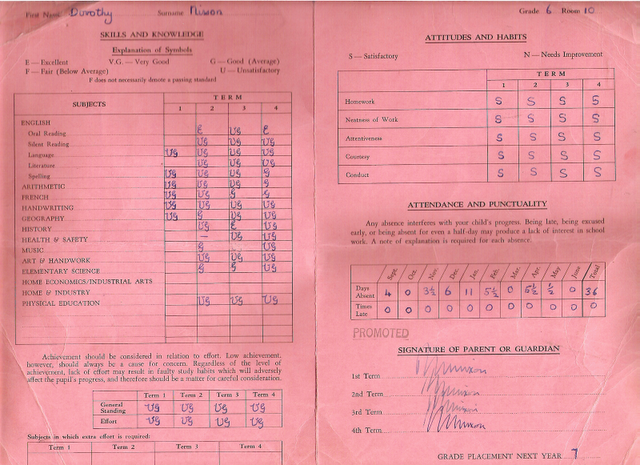 First Name Dorothy Surname Nixon
SKILLS AND KNOWLEDGE
Explanation of Symbols
E — Excellent V.G. — Very Good G — Good (Average)
F — Fair (Below Average) U — Unsatisfactory
F does not necessarily denote a passing standard
SUBJECTS
TERM
1 2 3 4
ENGLISH
Oral Reading E VG E
Silent Reading VG VG VG
Language VG VG VG VG
Literature VG VG VG
Spelling VG VG VG G
ARITHMETIC VG VG VG VG
FRENCH VG VG G G
HANDWRITING VG VG VG VG
GEOGRAPHY VG G VG VG
HISTORY VG E VG
HEALTH & SAFETY — VG VG
MUSIC G VG
ART & HANDWORK VG VG VG
ELEMENTARY SCIENCE G G VG
HOME ECONOMICS/INDUSTRIAL ARTS
HOME & INDUSTRY
PHYSICAL EDUCATION VG VG VG
Achievement should be considered in relation to effort. Low achievement,
however, should always be a cause for concern. Regardless of the level of
achievement, lack of effort may result in faulty study habits which will adversely
affect the pupil's progress, and therefore should be a matter for careful consideration.
Term 1 Term 2 Term 3 Term 4
General Standing VG VG VG VG
Effort VG VG VG VG
Subjects in which extra effort is required:
Term 1 Term 2 Term 3 Term 4
Grade 6 Room 10
ATTITUDES AND HABITS
S — Satisfactory N — Needs Improvement
TERM
1 2 3 4
Homework S S S S
Neatness of Work S S S S
Attentiveness S S S S
Courtesy S S S S
Conduct S S S S
ATTENDANCE AND PUNCTUALITY
Any absence interferes with your child's progress. Being late, being excused
early, or being absent for even a half-day may produce a lack of interest in school
work. A note of explanation is required for each absence.
Sept. Oct. Nov. Dec. Jan. Feb. Mar. Apr. May June Total
Days Absent 4 0 3½ 6 11 5½ 0 5½ ½ 0 36
Times Late 0 0 0 0 0 0 0 0 0 0 0
PROMOTED
SIGNATURE OF PARENT OR GUARDIAN
1st Term
2nd Term
3rd Term
4th Term
GRADE PLACEMENT NEXT YEAR 7